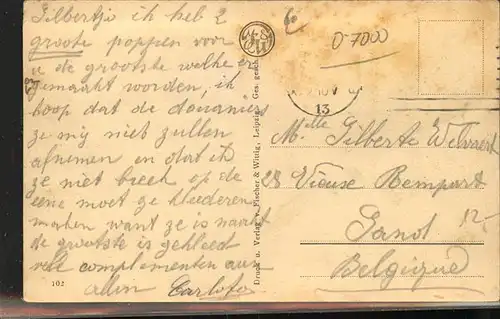 Gilbertje ik heb 2
groote poppen voor
u de grootste welke er
gemaakt worden, ik
hoop dat de douaniers
ze mij niet zullen
afnemen en dat ik
ze niet breek op de
eene moet ge kleederen
maken want ze is naakt
de grootste is gekleed
vele complimenten aan
allen Carlo
102
Druck u. Verlag v. Fischer & Wittig, Leipzig. Ges. gesch.
0-7000
NOV
13
Melle Gilberte
28 Vieuse Rempart
12-
Gand
Belgique